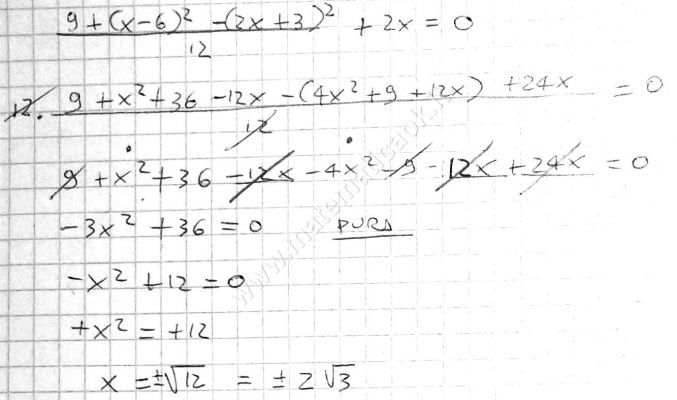 9 + (x-6)² - (2x+3)² / 12 + 2x = 0
12. 9 + x² + 36 - 12x - (4x² + 9 + 12x) + 24x / 12 = 0
9 + x² + 36 - 12x - 4x² - 9 - 12x + 24x = 0
-3x² + 36 = 0 PURA
-x² + 12 = 0
+x² = +12
x = ±√12 = ± 2√3
www.matematicaok.